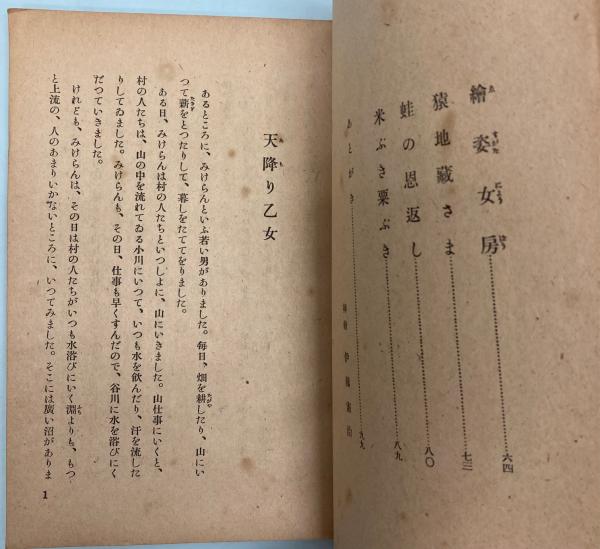 繪姿女房……………六四
猿地藏さま……………七三
蛙の恩返し……………八〇
米ぶき粟ぶき……………八九
あとがき……………九九
天降り乙女
あるところに、みけらんといふ若い男がありました。毎日、畑を耕したり、山にい
つて薪をとつたりして、暮しをたててをりました。
ある日、みけらんは村の人たちといつしよに、山にいきました。山仕事にいくと、
村の人たちは、山の中を流れてゐる小川にいつて、いつも水を飲んだり、汗を流した
りしてゐました。みけらんも、その日、仕事も早くすんだので、谷川に水を浴びにく
だつていきました。
けれども、みけらんは、その日は村の人たちがいつも水浴びにいく淵よりも、もつ
と上流の、人のあまりいかないところに、いつてみました。そこには廣い沼がありま
1